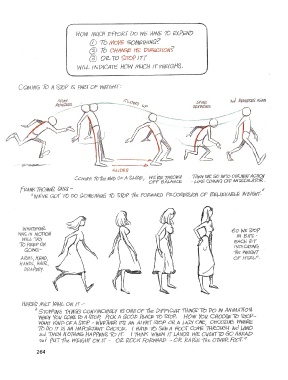 HOW MUCH EFFORT DO WE HAVE TO EXPEND
① TO MOVE SOMETHING?
② TO CHANGE ITS DIRECTION?
③ OR TO STOP IT?
WILL INDICATE HOW MUCH IT WEIGHS.
COMING TO A STOP IS PART OF WEIGHT:
SLOWS UP
SLIDES
COMES TO THE END OF A SLIDE,
HE'S THROWN OFF BALANCE
THEN WE GO INTO
LIKE COMING OFF AN ESCALATOR
FRANK THOMAS SAYS -
"WE'VE GOT TO DO SOMETHING TO STOP THE FORWARD PROGRESSION OF BELIEVABLE WEIGHT."
WHATEVER
WAS IN MOTION
WILL TRY
TO KEEP ON
GOING -
ARMS, HEAD,
HANDS, HAIR,
DRAPERY.
SO WE STOP
IN BITS -
EACH BIT
INVOLVING
THE WEIGHT
OF ITSELF.
HERE'S MILT KAHL ON IT -
"STOPPING THINGS CONVINCINGLY IS ONE OF THE DIFFICULT THINGS TO DO IN ANIMATION
WHEN YOU COME TO A STOP. PICK A GOOD PLACE TO STOP. HOW YOU CHOOSE TO STOP -
WHAT KIND OF A STOP - WHETHER IT'S AN ALERT STOP OR A LAZY ONE, CHOOSING WHERE
TO DO IT IS AN IMPORTANT CHOICE. I HATE TO SEE A FOOT COME THROUGH and LAND
and THEN NOTHING HAPPENING TO IT. I THINK WHEN IT LANDS WE OUGHT TO GO AHEAD
and PUT THE WEIGHT ON IT - OR ROCK FORWARD - OR RAISE THE OTHER FOOT."
264